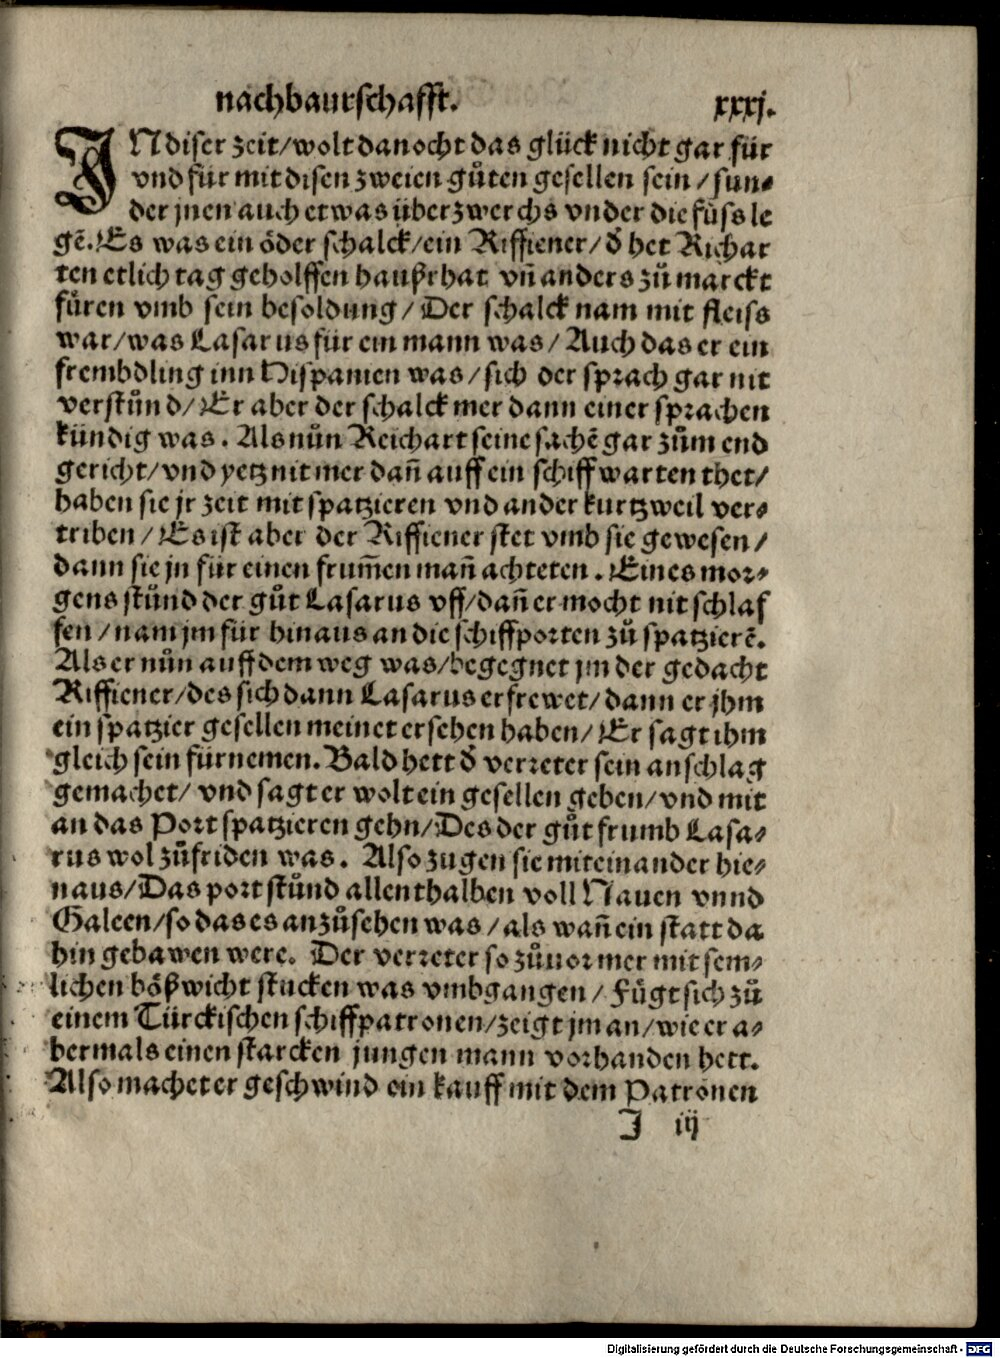 nachbaurschafft. xxxj.
INdiser zeit/wolt danocht das glück nicht gar für
vnd für mit disen zweien gůten gesellen sein/sun⸗
der jnen auch etwas überzwerchs vnder die füss le
gẽ. Es was ein öder schalck/ein Riffiener/d̕ het Richar
ten etlich tag geholffen haußrhat vñ anders zů marckt
füren vmb sein besoldung/Der schalck nam mit fleiss
war/was Lasarus für ein mann was/Auch das er ein
frembdling inn Hispanien was/sich der sprach gar nit
verstůnd/Er aber der schalck mer dann einer sprachen
kündig was. Als nůn Reichart seine sachẽ gar zům end
gericht/vnd yetz nit mer dañ auff ein schiff warten thet/
haben sie jr zeit mit spatzieren vnd ander kurtzweil ver⸗
triben/Es ist aber der Riffiener stet vmb sie gewesen/
dann sie jn für einen frum̃en mañ achteten. Eines mor⸗
gens stůnd der gůt Lasarus vff/dañ er mocht nit schlaf
fen/nam jm für hinaus an die schiffporten zů spatzierẽ.
Als er nůn auff dem weg was/begegnet jm der gedacht
Riffiener/des sich dann Lasarus erfrewet/dann er jhm
ein spatzier gesellen meinet ersehen haben/Er sagt ihm
gleich sein fürnemen. Bald hett d̕ verreter sein anschlag
gemachet/vnd sagt er wolt ein gesellen geben/vnd mit
an das Port spatzieren gehn/Des der gůt frumb Lasa⸗
rus wol zůfriden was. Also zugen sie miteinander hie⸗
naus/Das port stůnd allenthalben voll Nauen vnnd
Galeen/so das es anzůsehen was/als wañ ein statt da
hin gebawen were. Der verreter so zůuor mer mit sem⸗
lichen bößwicht stucken was vmbgangen/Fügt sich zů
einem Türckischen schiffpatronen/zeigt jm an/wie er a⸗
bermals einen starcken jungen mann vorhanden hett.
Also machet er geschwind ein kauff mit dem Patronen
J iij
Digitalisierung gefördert durch die Deutsche Forschungsgemeinschaft - DFG